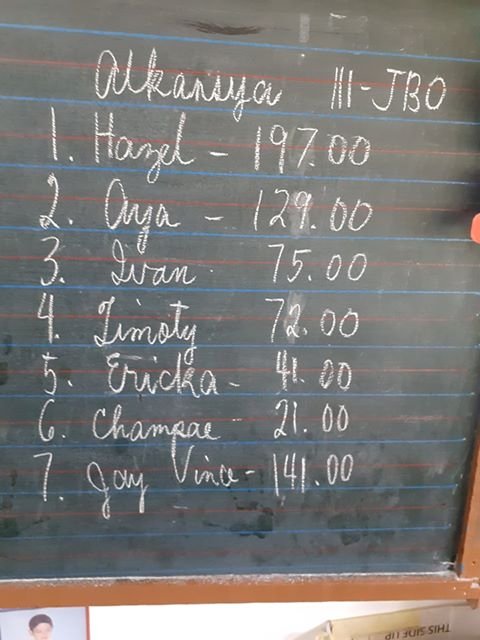 Alkansya III-JBO
1. Hazel - 197.00
2. Arya - 129.00
3. Ivan 75.00
4. Timoty 72.00
5. Ericka - 41.00
6. Champae - 21.00
7. Jay Vince - 141.00
THIS SIDE UP